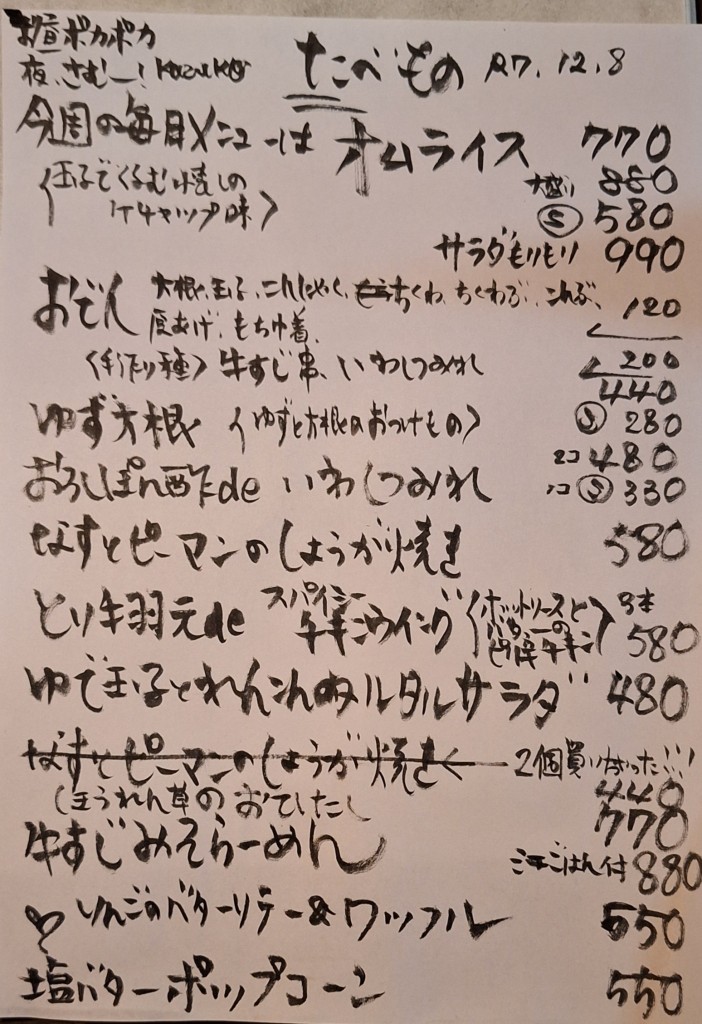 お昼ポカポカ
夜、さむー! Kazuko
たべもの R7.12.8
今週の毎日メニューは オムライス 770
大盛り 880
(玉子でくるむ焼しの
ケチャップ味)
Ⓢ 580
サラダもりもり 990
おでん 大根、玉子、こんにゃく、ちくわ、ちくわぶ、こんぶ、 120
厚あげ、もち巾着
(手作り種) 牛すじ串、いわしつみれ 200
440
ゆず大根 (ゆずと大根のおつけもの) Ⓢ 280
2コ 480
おろしぽん酢de いわしつみれ 1コ Ⓢ 330
なすとピーマンのしょうが焼き 580
とり手羽元de スパイシーチキンウイング (ホットソースと バターの チキン) 3本 580
ゆで玉子とれんこんのタルタルサラダ 480
なすとピーマンのしょうが焼き 2個買いなかった!!!
ほうれん草のおひたし 440
牛すじみそらーめん 770
ごはん付 880
♡りんごのバターソテー&ワッフル 550
塩バターポップコーン 550